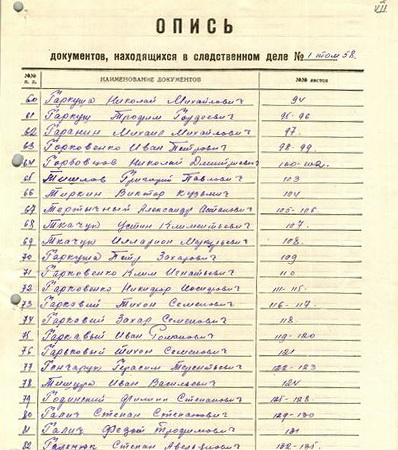 ОПИСЬ
документов, находящихся в следственном деле № 1 том 58.
№№ п. п. НАИМЕНОВАНИЕ ДОКУМЕНТОВ №№ листов
60 Гаркуша Николай Михайлович 94
61 Гаркуш Трофим Гордеевич 95-96
62 Гаранин Михаил Михайлович 97.
63 Горковенко Иван Петрович 98-99.
64 Николай Дмитриевич 100-102.
65 Григорий Павлович 103
66 Тиркин Виктор Кузьмич 104
67 Мертычный Александр 105-106.
68 Ткачук Устин Климентьевич 107.
69 Ткачук Илларион 108.
70 Гаркуша Петр Захарович 109
71 Гарковенко Клим Игнатьевич 110
72 Гарковенко Никифор Иосифович 111-115.
73 Гаркавий Тихон Семенович 116-117.
74 Гарковий Захар Семенович 118
75 Гаркавый Иван Романович 119-120
76 Гарьковый Тихон Семенович 121
77 Гончарук Герасим Терентьевич 122-123
78 Тишура Иван Васильевич 124
79 Годинский Филипп Степанович 125-128
80 Галич Степан Степанович 129-130
81 Галич Федот Трофимович 131
82 Степан 132-135.